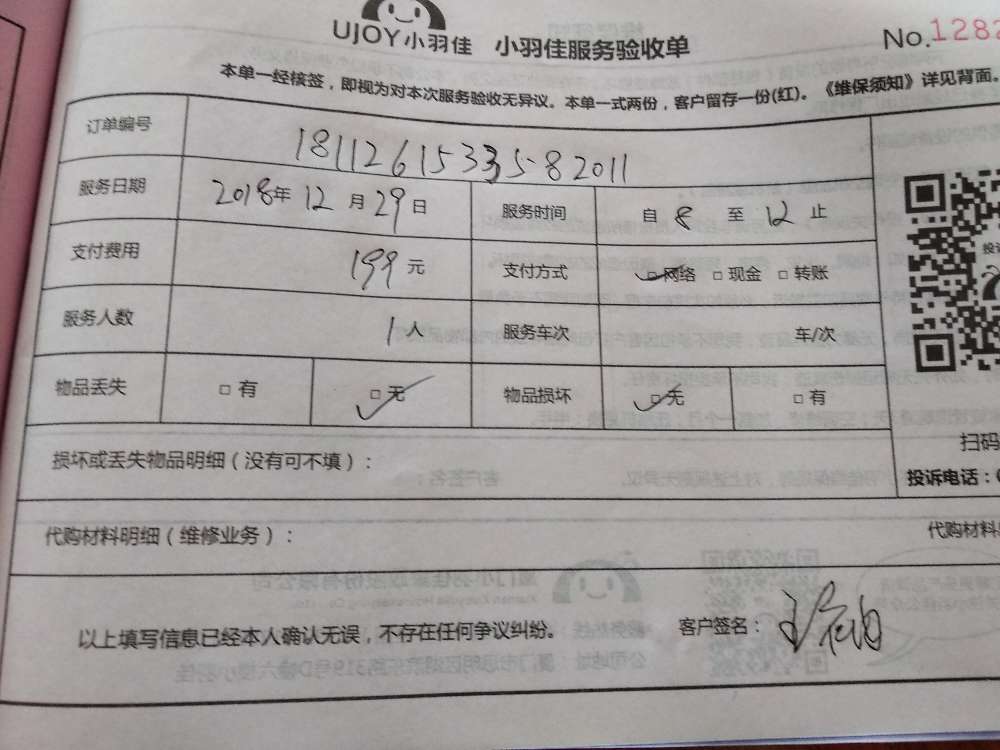 UJOY小羽佳 小羽佳服务验收单
No.1282
本单一经核签，即视为对本次服务验收无异议。本单一式两份，客户留存一份(红)。《维保须知》详见背面。
订单编号 1811261533582011
服务日期 2018年12月29日 服务时间 自8至12止
支付费用 199元 支付方式 □网络 □现金 □转账
服务人数 1人 服务车次 车/次
物品丢失 □有 □无 物品损坏 □无 □有
损坏或丢失物品明细（没有可不填）：
扫码
投诉电话：
代购材料明细（维修业务）： 代购材料
以上填写信息已经本人确认无误，不存在任何争议纠纷。 客户签名：